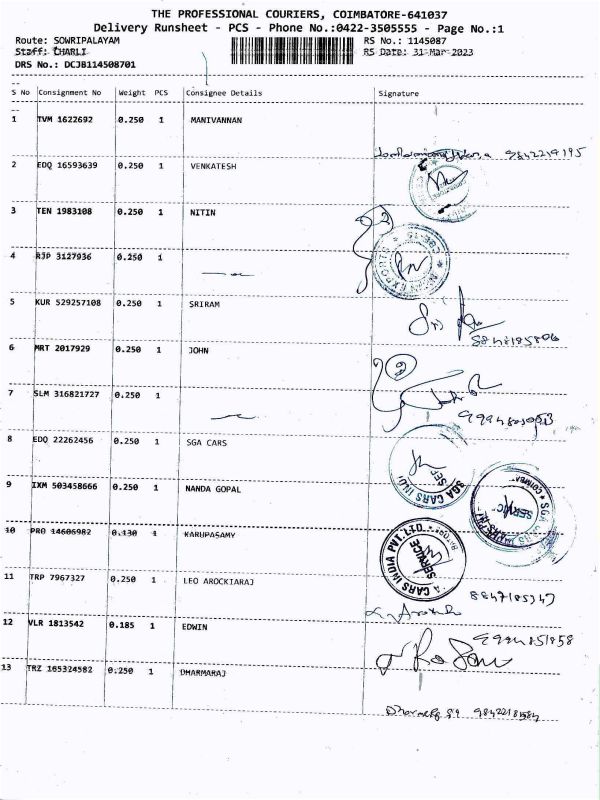 THE PROFESSIONAL COURIERS, COIMBATORE-641037
Delivery Runsheet - PCS - Phone No.:0422-3505555 - Page No.:1
Route: SOWRIPALAYAM RS No.: 1145087
Staff: CHARLI RS Date: 31 Mar 2023
DRS No.: DCJB114508701
S No Consignment No Weight PCS Consignee Details Signature
1 TVM 1622692 0.250 1 MANIVANNAN
9842214195
2 EDQ 16593639 0.250 1 VENKATESH
3 TEN 1983108 0.250 1 NITIN
4 RJP 3127936 0.250 1
5 KUR 529257108 0.250 1 SRIRAM
6 MRT 2017929 0.250 1 JOHN
7 SLM 316821727 0.250 1
8 EDQ 22262456 0.250 1 SGA CARS
SGA CARS INDI
9 IXM 503458666 0.250 1 NANDA GOPAL
10 PRO 14606982 0.130 1 KARUPASAMY
A CARS INDIA PVT. LTD.
SERVICE
11 TRP 7967327 0.250 1 LEO AROCKIARAJ
12 VLR 1813542 0.185 1 EDWIN
13 TRZ 165324582 0.250 1 DHARMARAJ